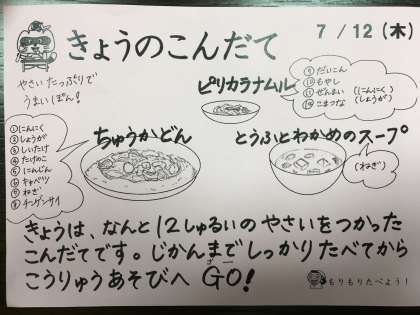 きょうのこんだて
7/12(木)
やさいたっぷりで
うまいぽん!
ピリカラナムル
⑨だいこん
⑩もやし
⑪ぜんまい
⑫こまつな
(にんにく)
(しょうが)
ちゅうかどん
①にんにく
②しょうが
③しいたけ
④たけのこ
⑤にんじん
⑥キャベツ
⑦ねぎ
⑧チンゲンサイ
とうふとわかめのスープ
(ねぎ)
きょうは、なんと12しゅるいのやさいをつかった
こんだてです。じかんまでしっかりたべてから
こうりゅうあそびへGO!
ゴー
もりもりたべよう!